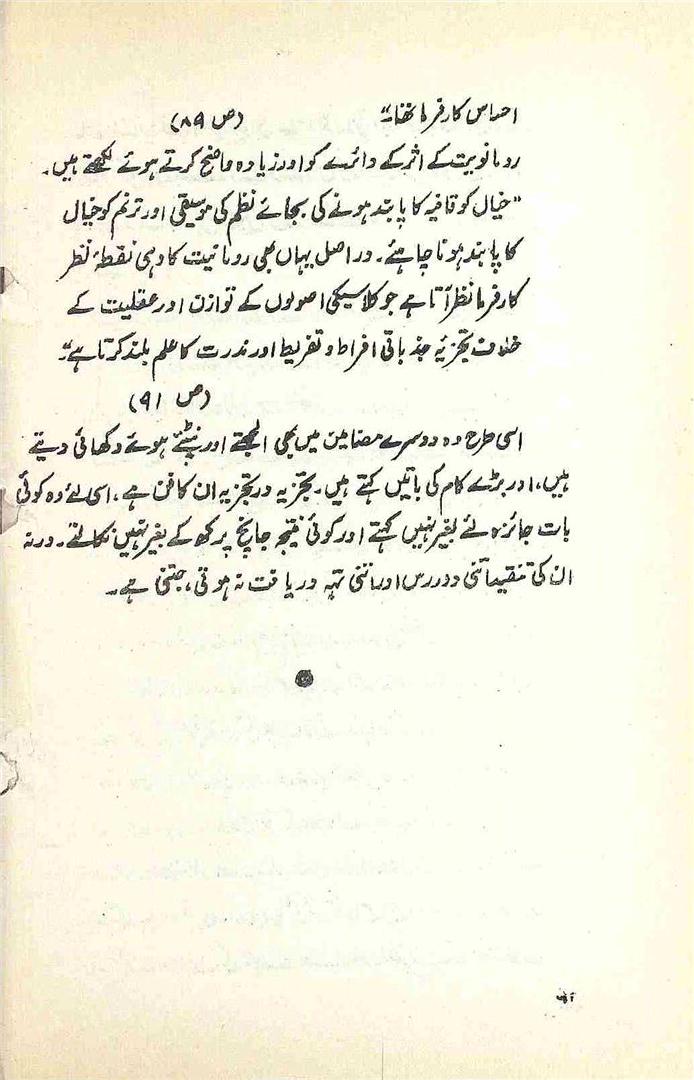 احساس کارفرما تھا۔" (ص ۸۹)
رومانویت کے اثر کے دائرے کو اور زیادہ واضح کرتے ہوئے لکھتے ہیں۔
"خیال کو قافیہ کا پابند ہونے کی بجائے نظم کی موسیقی اور ترنم کو خیال
کا پابند ہونا چاہئے۔ دراصل یہاں بھی رومانیت کا وہی نقطۂ نظر
کارفرما نظر آتا ہے جو کلاسیکی اصولوں کے توازن اور عقلیت کے
خلاف تجزیہ جذباتی افراط و تفریط اور ندرت کا علم بلند کرتا ہے"۔
(ص ۹۱)
اسی طرح وہ دوسرے مضامین میں بھی الجھتے اور نپٹتے ہوئے دکھائی دیتے
ہیں، اور بڑے کام کی باتیں کہتے ہیں۔ تجزیہ در تجزیہ ان کا فن ہے، اسی لئے وہ کوئی
بات جائزہ لئے بغیر نہیں کہتے اور کوئی نتیجہ جانچ پرکھ کے بغیر نہیں نکالتے۔ ورنہ
ان کی تنقید اتنی دوررس اور اتنی تہہ دریافت نہ ہوتی، جتنی ہے۔